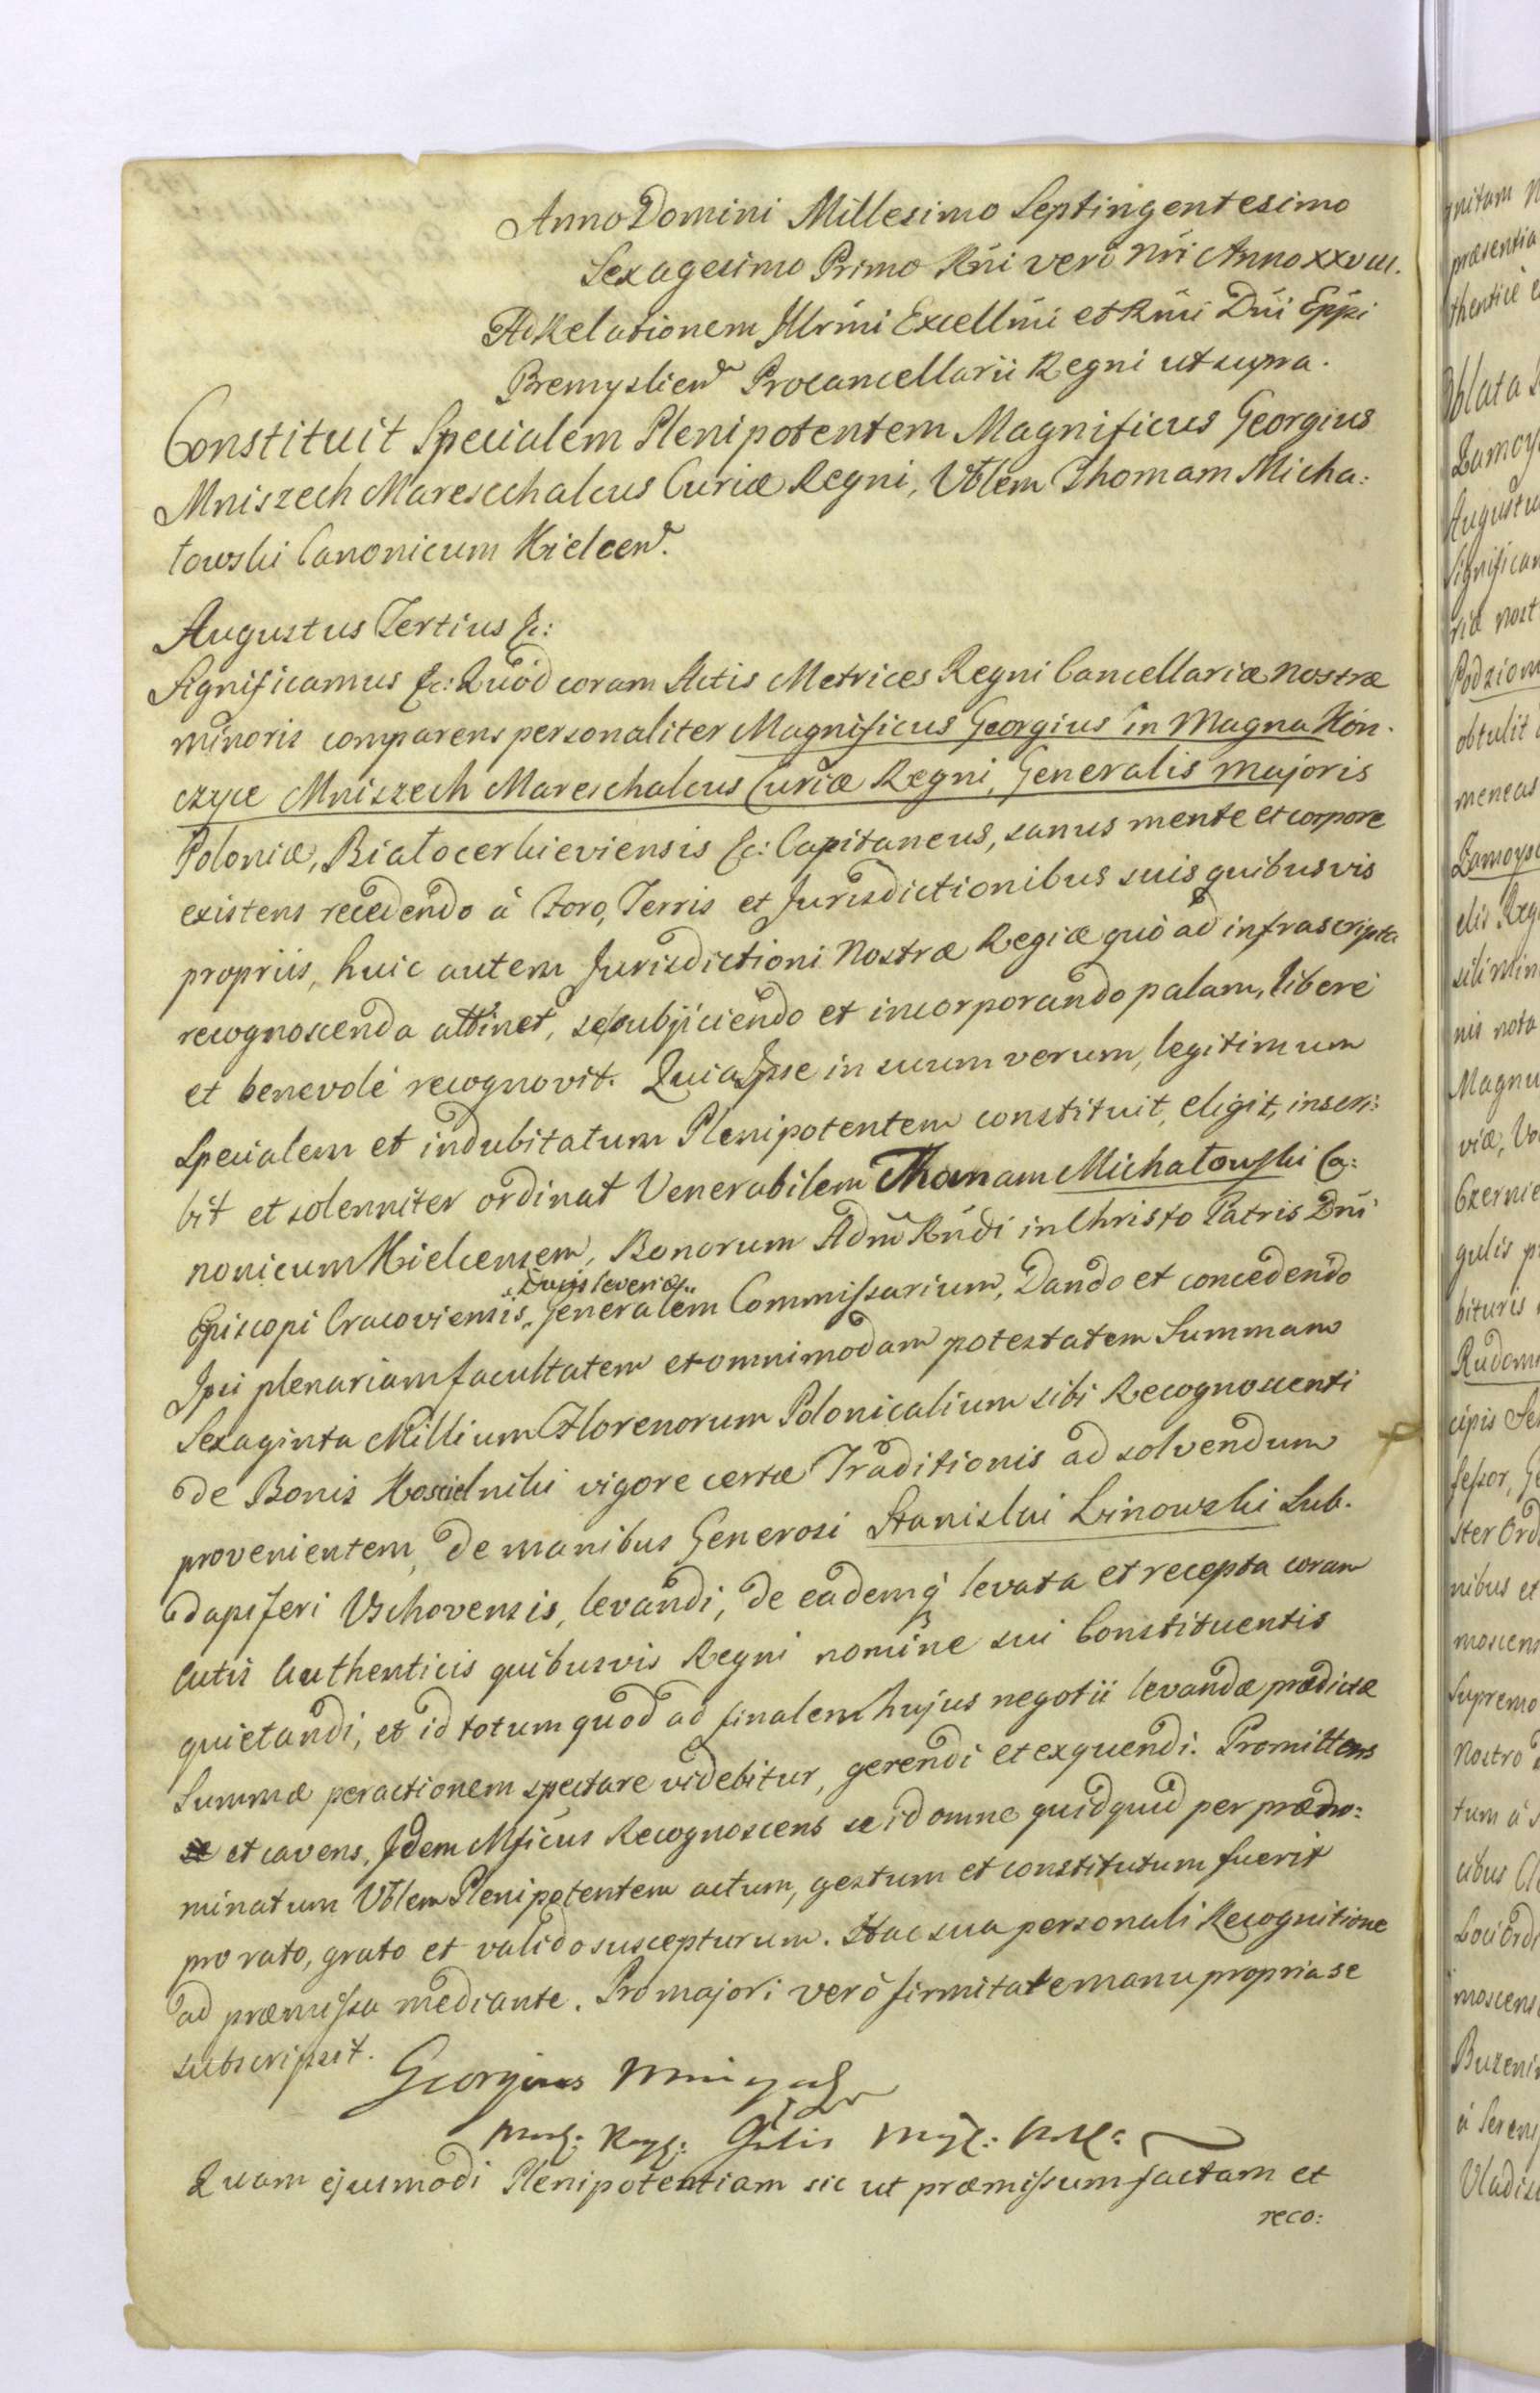 Anno Domini Millesimo Septingentesimo
Sexagesimo Primo Rńi verò Nri Anno XXVIII.
Ad Relationem Illrmi Excellmi et Rmi Dni Eppi
Premyslien Procancellarii Regni ut supra.
Constituit Specialem Plenipotentem Magnificus Georgius
Mniszech Mareschalcus Curiæ Regni, Vblem Thomam Micha:
łowski Canonicum Kielcen.
Augustus Tertius &c:
Significamus &c: Quòd coram Actis Metrices Regni Cancellariæ nostræ
minoris comparens personaliter Magnificus Georgius in Magna Kon-
czyce Mniszech Mareschalcus Curiæ Regni, Generalis Majoris
Poloniæ, Białocerkieviensis &c: Capitaneus, sanus mente et corpore
existens recedendo à Foro, Terris et Jurisdictionibus suis quibusvis
propriis, huic autem Jurisdictioni Nostræ Regiæ quò ad infrascripta
recognoscenda attinet, se subjiciendo et incorporando palam, liberè
et benevolè recognovit. Quia Ipse in suum verum, legitimum
Specialem et indubitatum Plenipotentem constituit, eligit, inscri:
bit et solenniter ordinat Venerabilem Thomam Michałowski Ca:
nonicum Kielcensem, Bonorum Adm Rndi in Christo Patris Dni
Episcopi Cracoviensis, Generalem Commissarium, Dando et concedendo
Ipsi plenariam facultatem et omnimodam potestatem Summam
Sexaginta Millium Florenorum Polonicalium sibi Recognoscenti
de Bonis Koscielniki vigore certæ Traditionis ad solvendum
provenientem, de manibus Generosi Stanislai Linowski Sub-
dapiferi Vschovensis, levandi, de eademq́ levata et recepta coram
Actis Authenticis quibusvis Regni nomine sui Constituentis
quietandi, et id totum quod ad finalem hujus negotii levandæ prædictæ
Summæ peractionem spectare videbitur, gerendi et exquendi. Promittens
et cavens, Idem Mficus Recognoscens se id omne quidquid per prædno:
minatum Vblem Plenipotentem actum, gestum et constitutum fuerit
pro rato, grato et valido suscepturum. Hac sua personali Recognitione
ad præmissa mediante. Pro majori verò firmitate manu propria se
subscripsit.
Georgius Mniszech
Quam ejusmodi Plenipotentiam sic ut præmissum factam et
reco: